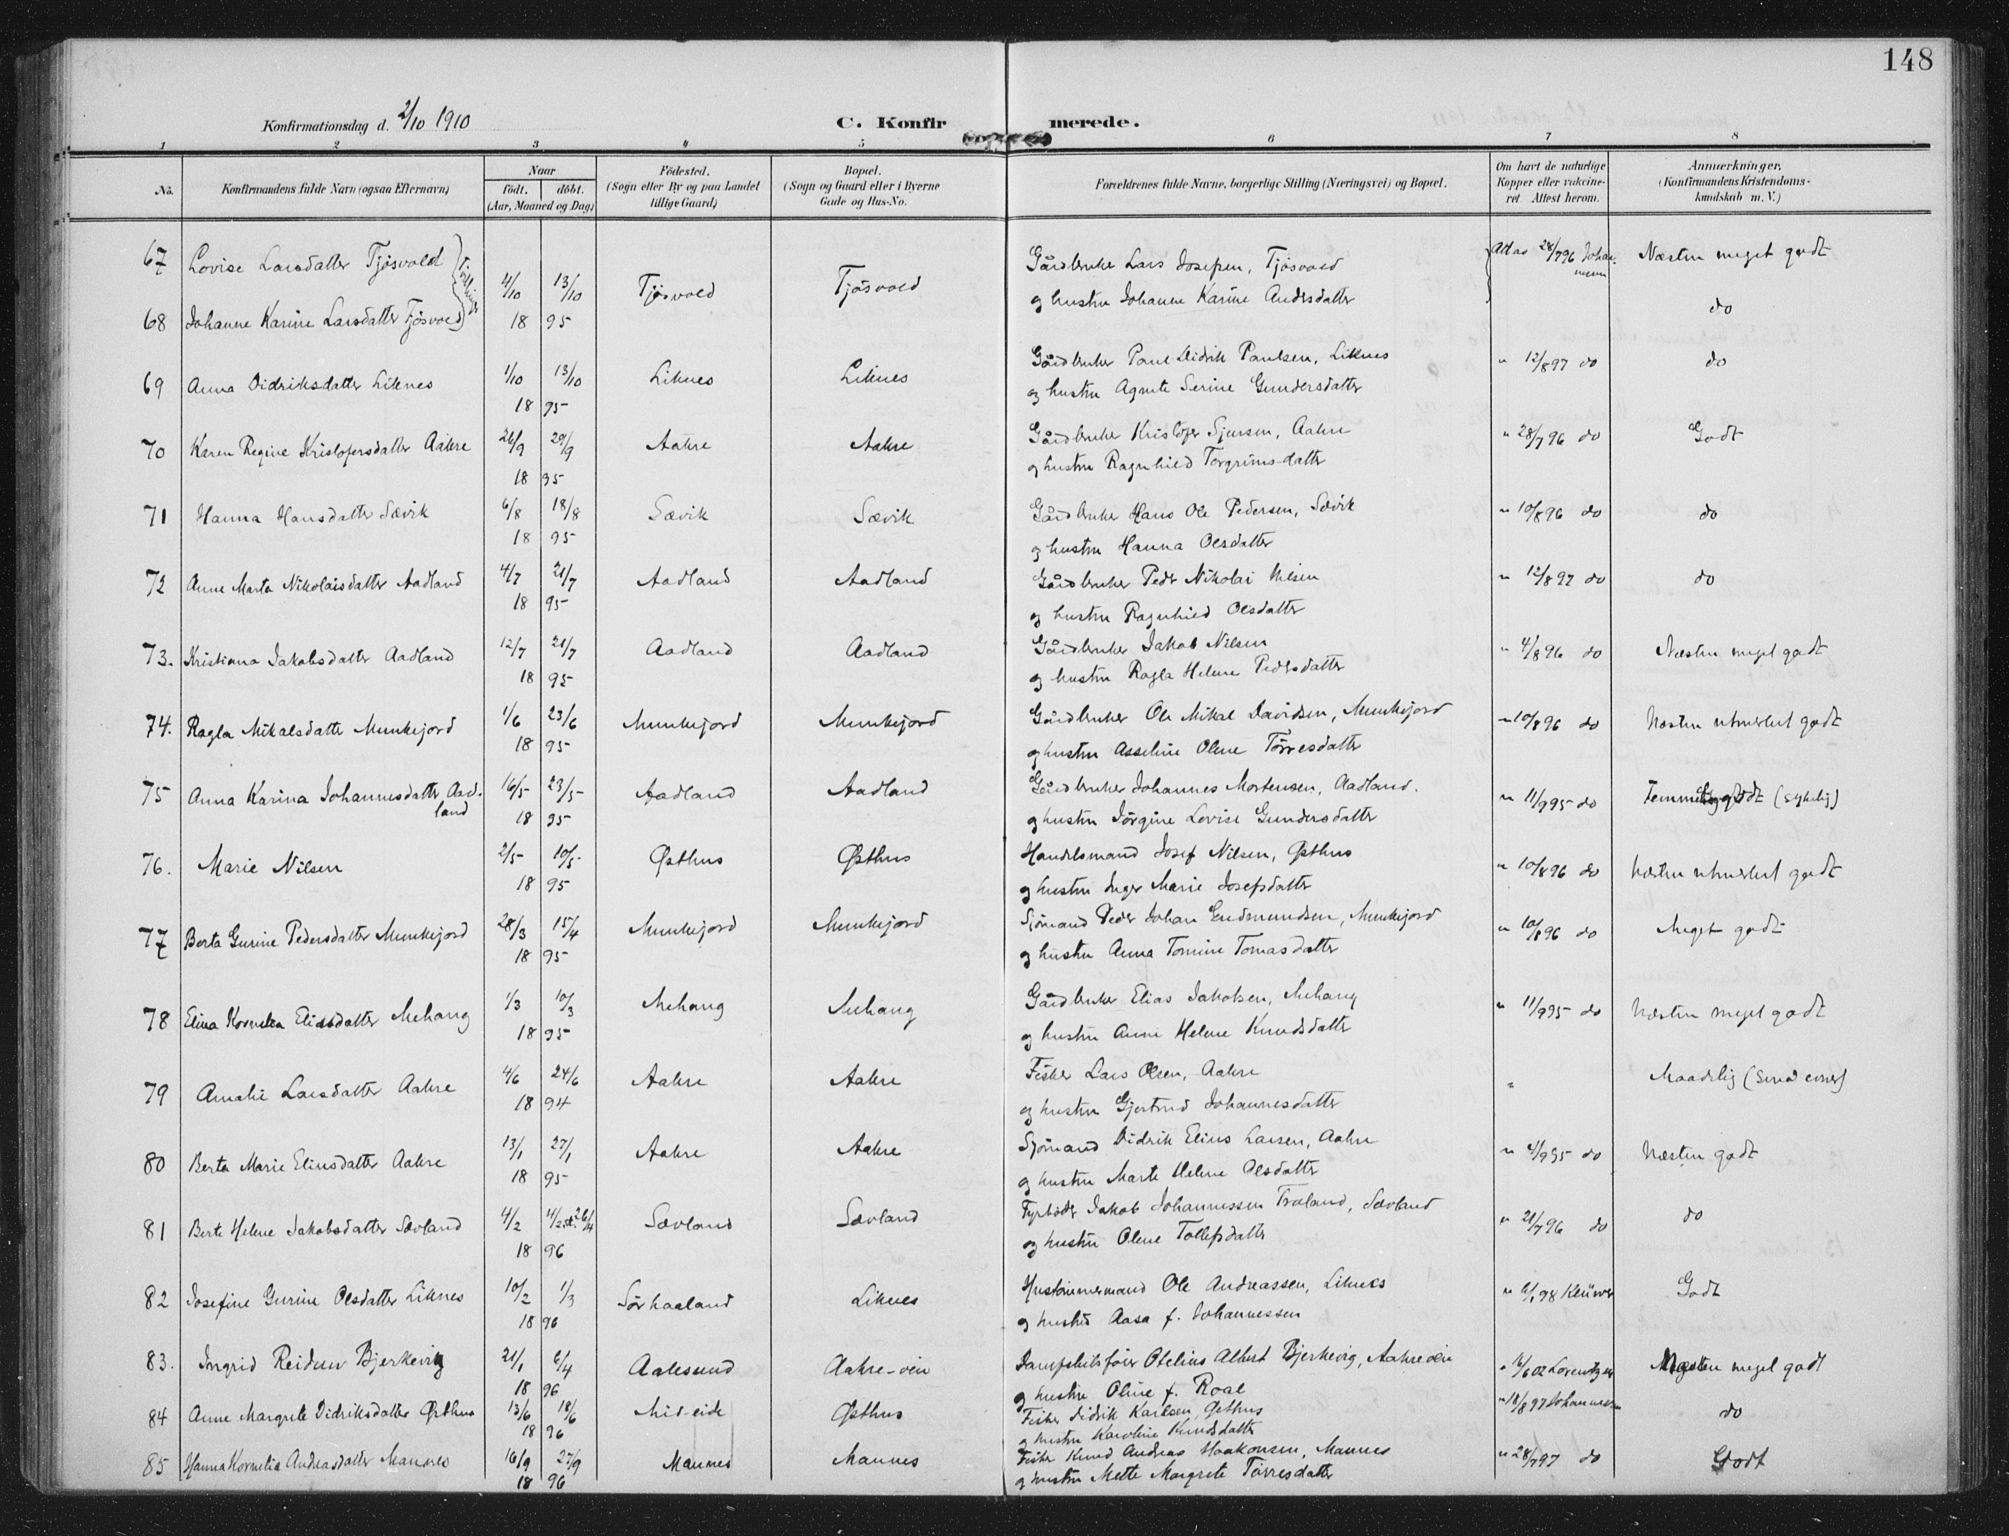 148
Konfirmationsdag d. 2/10 1910
C. Konfirmerede.
1 2 3 4 5 6 7 8
No.
Konfirmandens fulde Navn (ogsaa Efternavn)
Naar
födt. döbt.
(Aar, Maaned og Dag)
Födested.
(Sogn eller By og paa Landet
tillige Gaard)
Bopæl.
(Sogn og Gaard eller i Byerne
Gade og Hus-No.
Forældrenes fulde Navne, borgerlige Stilling (Næringsvei) og Bopæl.
Om havt de naturlige
Kopper eller vakcine-
ret. Attest herom.
Anmærkninger.
(Konfirmandens Kristendoms-
kundskab m. V.)
67 Lovise Larsdatter Tjösvold 4/10 13/10 Tjösvold Tjösvold Gårdbruker Lars Josefsen, Tjösvold 28/7 96 Næsten meget godt
og hustru Johanne Karine Andersdatter
68 Johanne Karine Larsdatter Tjösvold 18 95 do
69 Anna Didriksdatter Liknes 1/10 13/10 Liknes Liknes Gårdbruker Paul Didrik Paulsen, Liknes " 12/8 97 do do
18 95 og hustru Agnete Serine Gundersdatter
70 Karen Regine Kristofersdatter Aakre 26/9 29/9 Aakre Aakre Gårdbruker Kristofer Sjursen, Aakre " 28/7 96 do Godt
18 95 og hustru Ragnhild Torgrimsdatter
71 Hanna Hansdatter Sævik 6/8 18/8 Sævik Sævik Gårdbruker Hans Ole Pedersen, Sævik " 10/8 96 do do
18 95 og hustru Hanna Olsdatter
72 Anne Marta Nikolaisdatter Aadland 4/7 21/7 Aadland Aadland Gårdbruker Peder Nikolai Nilsen " 12/8 97 do do
18 95 og hustru Ragnhild Olsdatter
73. Kristiana Jakobsdatter Aadland 12/7 21/7 Aadland Aadland Gårdbruker Jakob Nilsen " 4/8 96 do Næsten meget godt
18 95 og hustru Ragla Helene Pedersdatter
74. Ragla Mikalsdatter Munkejord 1/6 23/6 Munkejord Munkejord Gårdbruker Ole Mikal Davidsen, Munkejord " 10/8 96 do Næsten utmerket godt
18 95 og hustru Asseline Olene Törresdatter
75 Anna Karina Johannesdatter Aad- 16/5 23/5 Aadland Aadland Gårdbruker Johannes Mortensen, Aadland. " 11/9 95 do Temmelig godt (sykelig)
land 18 95 og hustru Jörgine Lovise Gundersdatter
76. Marie Nilsen 2/5 10/5 Østhus Østhus Handelsmand Josef Nilsen, Østhus " 10/8 96 do Næsten utmerket godt
18 95 og hustru Inger Marie Josefsdatter
77 Berta Gurine Pedersdatter Munkejord 28/3 15/4 Munkejord Munkejord Sjömand Peder Johan Gudmundsen, Munkejord " 10/8 96 do Meget godt
18 95 og hustru Anna Tomine Tomasdatter
78 Elina Kornelia Eliasdatter Mehaug 1/3 10/3 Mehaug Mehaug Gårdbruker Elias Jakobsen, Mehaug " 11/9 95 do Næsten meget godt
18 95 og hustru Anne Helene Knudsdatter
79 Amalie Larsdatter Aakre 4/6 24/6 Aakre Aakre Fisker Lars Olsen, Aakre " Maadelig (små evner)
18 94 og hustru Gjertrud Johannesdatter
80 Berta Marie Eliusdatter Aakre 13/1 27/1 Aakre Aakre Sjömand Didrik Elius Larsen, Aakre " 4/9 95 do Næsten godt
18 95 og hustru Marte Helene Olsdatter
81 Berte Helene Jakobsdatter Sævland 4/2 4/2 st. 26/4 Sævland Sævland Fyrböder Jakob Johannessen Træland, Sævland " 21/7 96 do do
18 96 og hustru Olene Tollefsdatter
82 Josefine Gurine Olsdatter Liknes 10/2 1/3 Sörhaaland Liknes Hustömmermand Ole Andreassen, Liknes " 6/1 98 Klüwer Godt
18 96 og hustru Aasa f. Johannessen
83. Ingrid Reidun Bjerkevig 21/1 6/4 Aalesund Aakre-vein Dampskibsförer Otelius Albert Bjerkevig, Aakreveien " 16/6 02 Lorentzen Næsten meget godt
18 96 og hustru Oline f. Roal
84 Anne Margrete Didriksdatter Østhus 13/6 18/6 Mid-eide Østhus Fisker Didrik Karlsen, Østhus " 18/8 97 Johannessen do
18 96 og hustru Karoline Knudsdatter
85 Hanna Kornelia Andreasdatter Mannes 16/9 27/9 Mannes Mannes Fisker Knud Andreas Haakonsen, Mannes " 28/7 97 do Godt
18 96 og hustru Mette Margrete Törresdatter